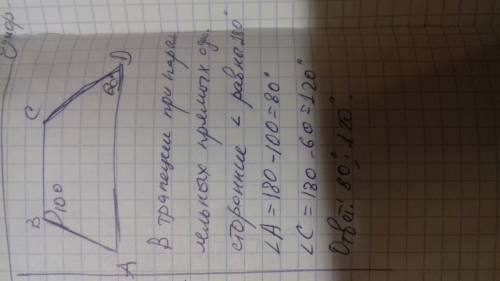 B
C
D
A
100
60
В трапеции при парал
лельных прямых одно
сторонние < равна 180°
∠A = 180 - 100 = 80°
∠C = 180 - 60 = 120°
Ответ: 80°; 120°